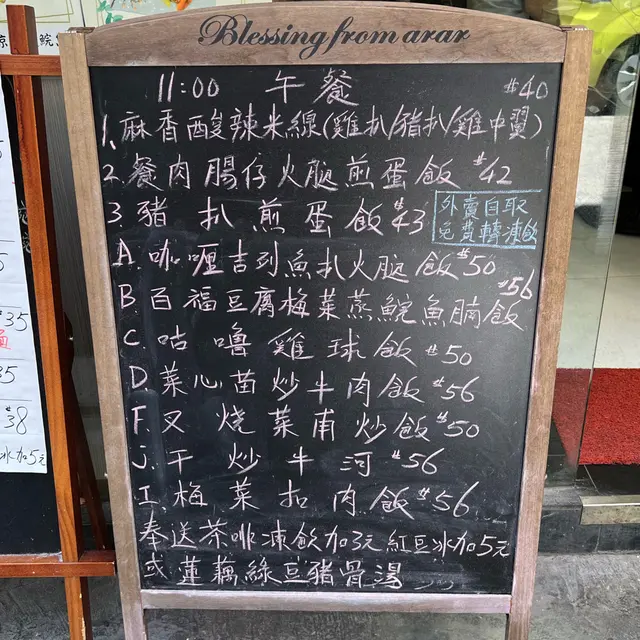 Blessing from arar
11:00 午餐 $40
1. 麻香酸辣米線(雞扒/豬扒/雞中翼)
2. 餐肉腸仔火腿煎蛋飯 $42
3. 豬扒煎蛋飯 $43
外賣自取
免費轉凍飲
A. 咖喱吉列魚扒火腿飯 $50
B. 百福豆腐梅菜蒸鯇魚腩飯 $56
C. 咕嚕雞球飯 $50
D. 菜心苗炒牛肉飯 $56
F. 叉燒菜甫炒飯 $50
J. 干炒牛河 $56
I. 梅菜扣肉飯 $56
奉送茶啡凍飲加3元紅豆冰加5元
或蓮藕綠豆豬骨湯
$35
35
$38
冰加5元